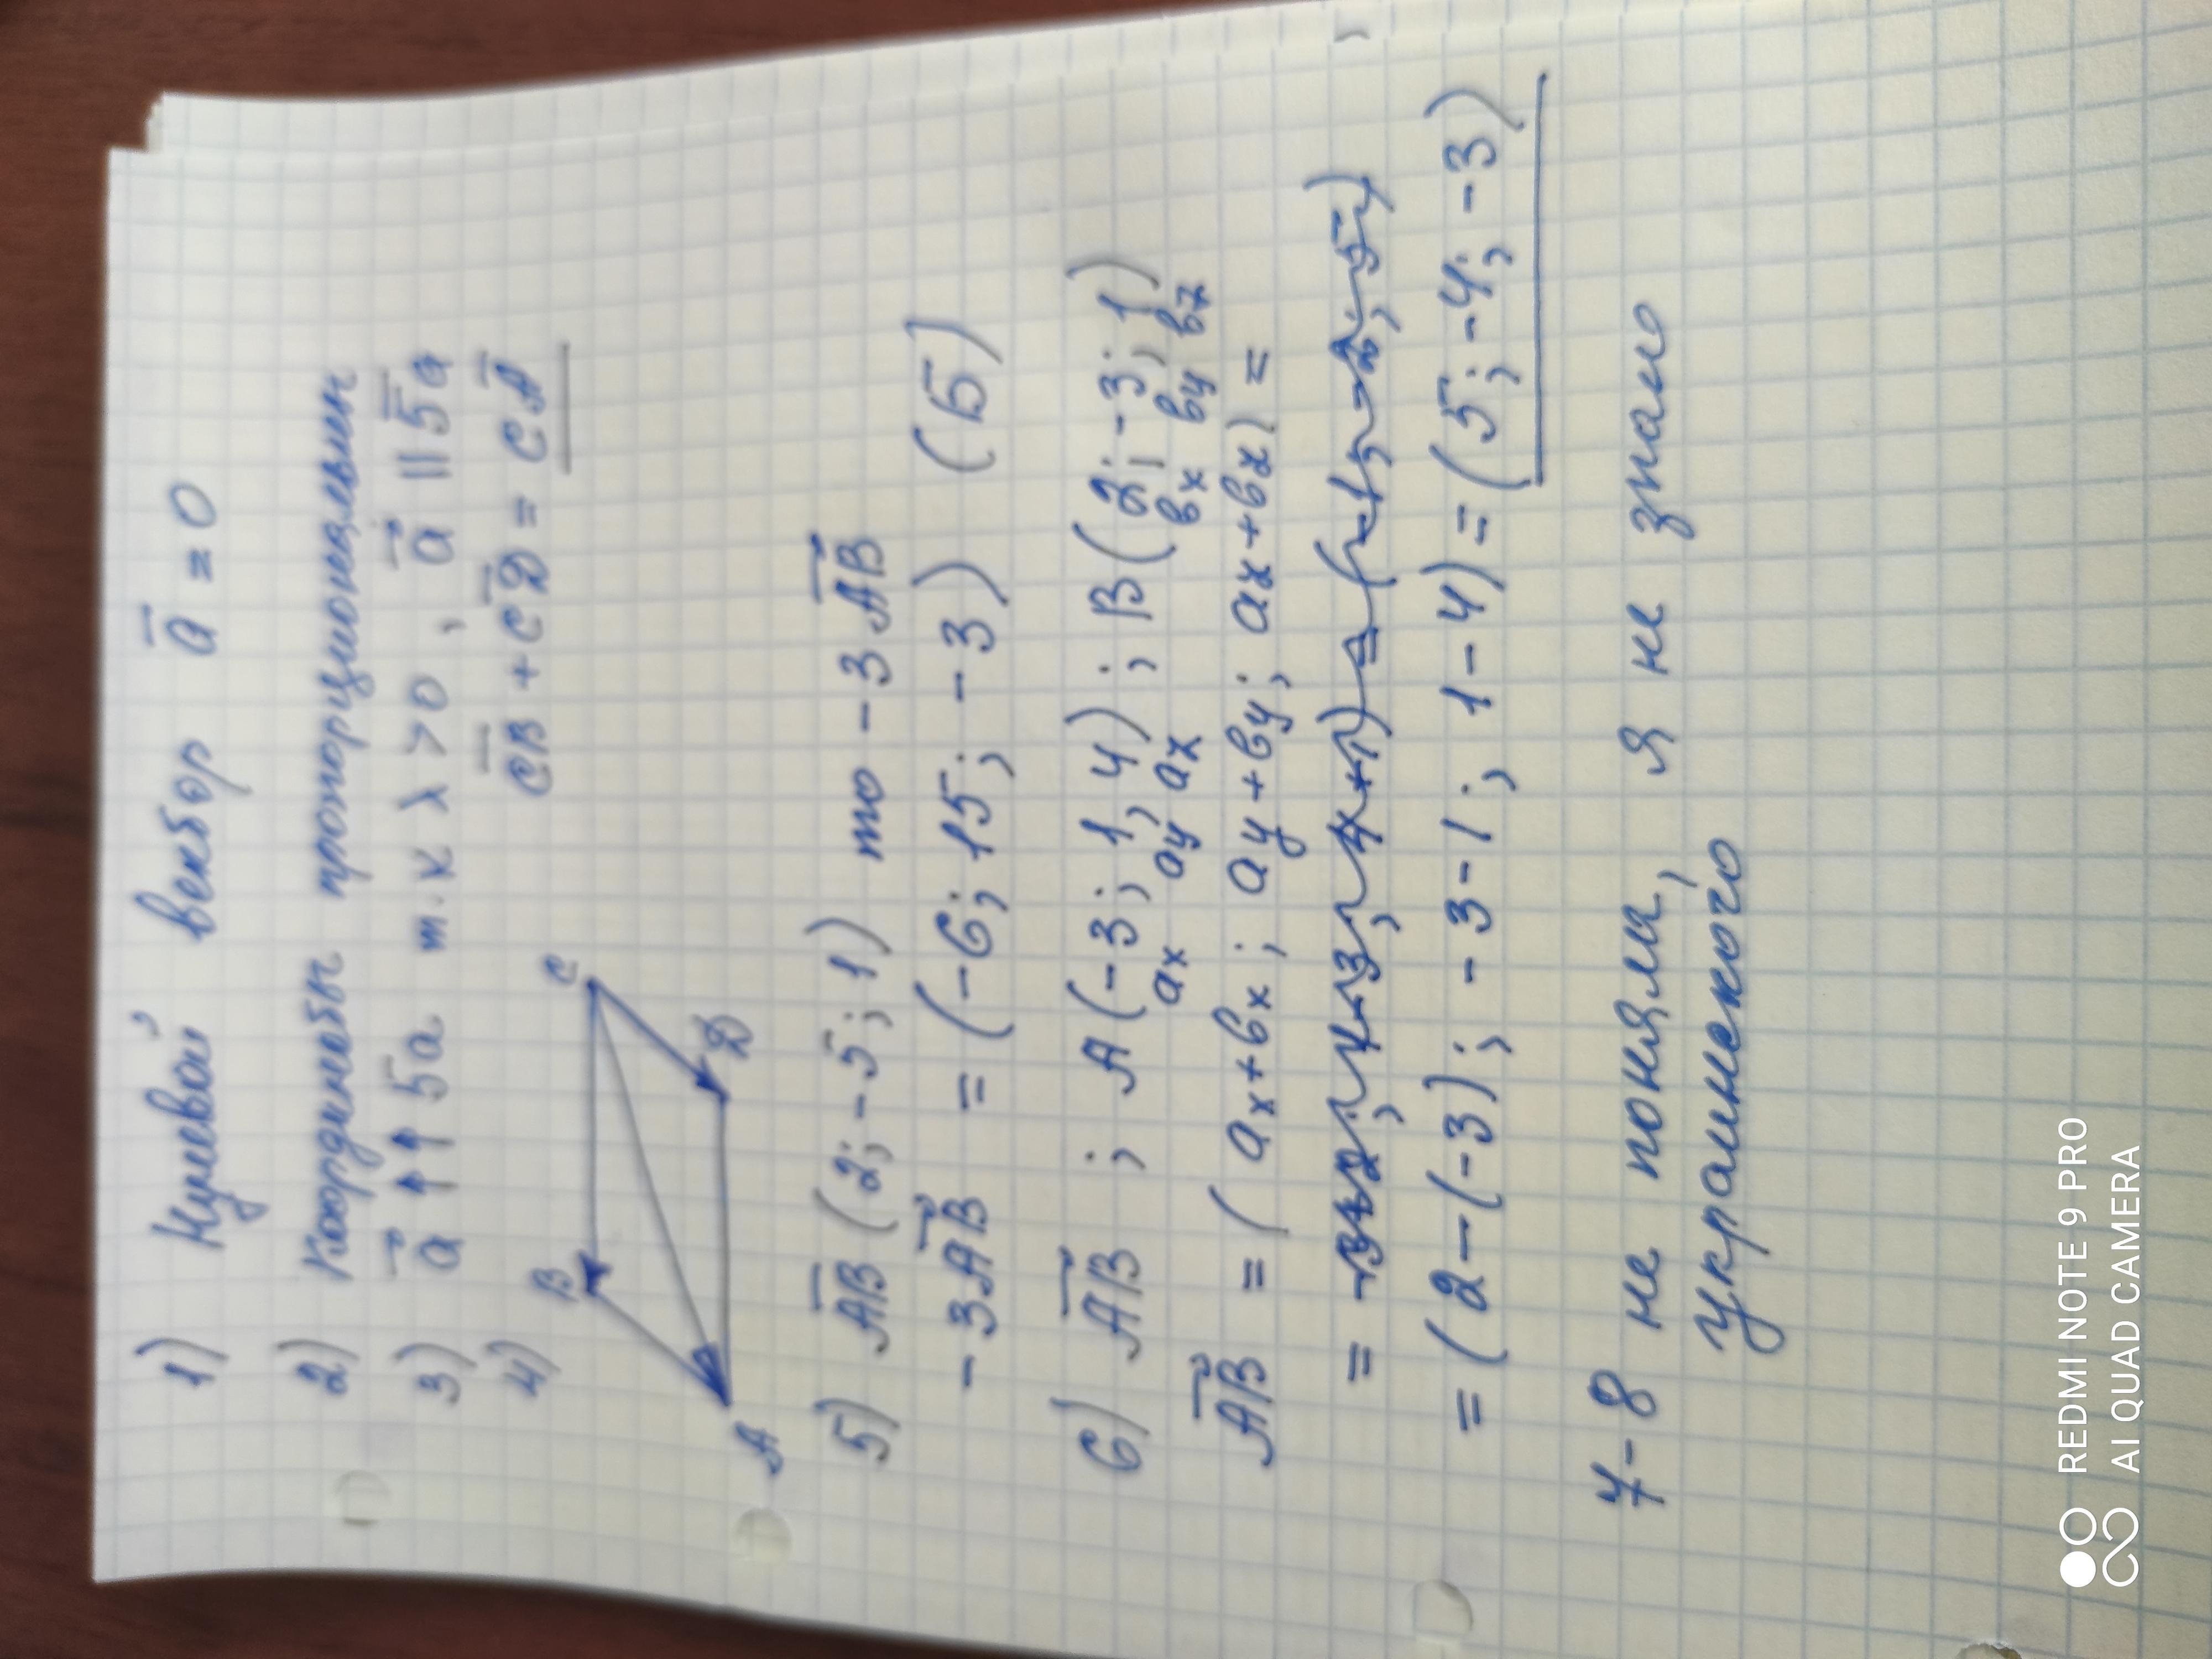 1) Нулевой вектор a̅ = 0
2) Координаты пропорциональны
3) a⃗ ↑↑ 5a т.к λ > 0, a⃗ || 5̅a̅
4) C̅B̅ + C̅D̅ = C̅A̅
B C
A D
5) A̅B̅ (2; -5; 1) то -3A⃗B⃗
-3A⃗B⃗ = (-6; 15; -3) (Б)
6) A⃗B⃗ ; A(-3; 1, 4) ; B(2; -3; 1)
ax ay az bx by bz
A⃗B⃗ = (ax+bx; ay+by; az+bz) =
= (2-(-3); -3-1; 1-4) = (5; -4; -3)
7-8 не поняла, я не знаю
украинского
REDMI NOTE 9 PRO
AI QUAD CAMERA